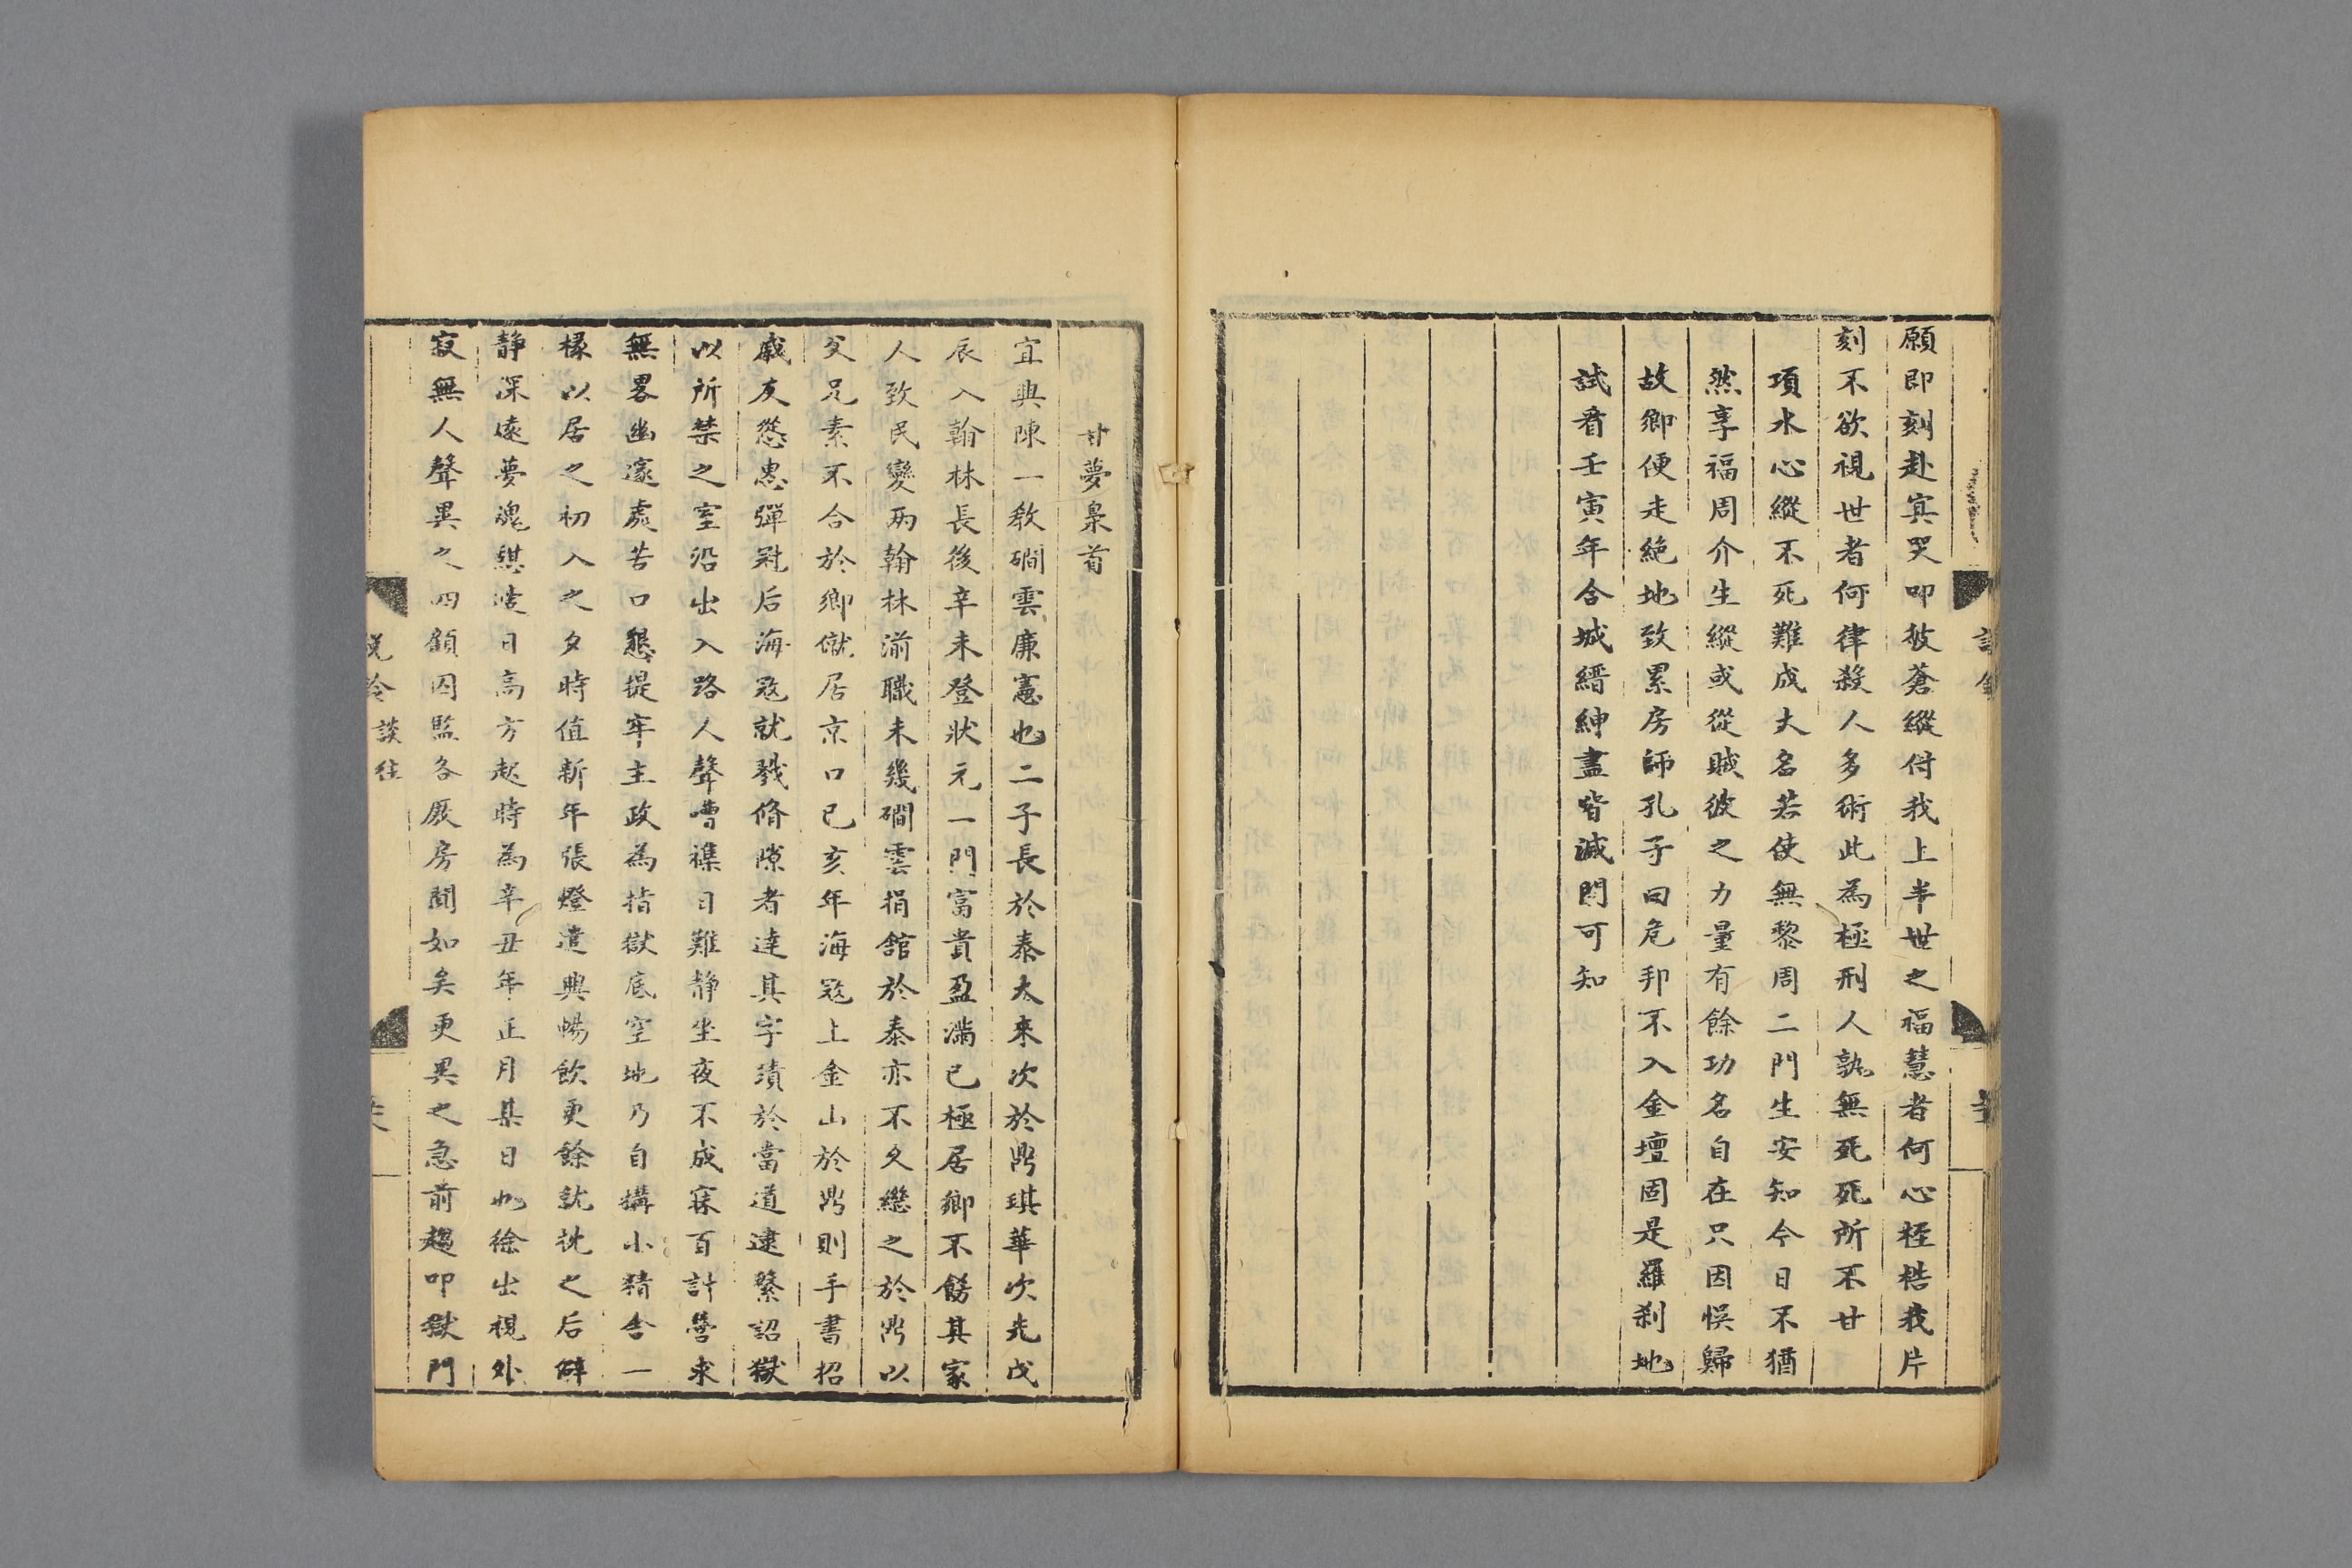 願即刻赴冥哭叩彼蒼縱付我上半世之福慧者何心桎梏我片
刻不欲視世者何律殺人多術此為極刑人孰無死死所不甘
項水心縱不死難成大名若使無黎周二門生安知今日不猶
然享福周介生縱或從賊彼之力量有餘功名自在只因悞歸
故鄉便走絶地致累房師孔子曰危邦不入金壇固是羅刹地
試看壬寅年合城縉紳盡皆滅門可知
甘夢梟首
宜興陳一教磵雲廉憲也二子長於泰大來次於鼎琪華次先戊
辰入翰林長後辛未登狀元一門富貴盈滿已極居鄉不飭其家
人致民變兩翰林湔職未幾磵雲捐舘於泰亦不久繼之於鼎以
父兄素不合於鄉僦居京口己亥年海冦上金山於鼎則手書招
戚友慫恿彈冠后海冦就戮脩隙者達其字蹟於當道逮繫詔獄
以所禁之室沿出入路人聲嘈襍日難靜坐夜不成寐百計營求
無畧幽邃處苦口懇提牢主政為指獄底空地乃自搆小精舍一
椽以居之初入之夕時值新年張燈遣興暢飲更餘就枕之后僻
靜深遠夢魂甚適日高方起時為辛丑年正月某日也徐出視外
寂無人聲異之四顧囚監各厫房闃如矣更異之急前趨叩獄門
說鈴
談往